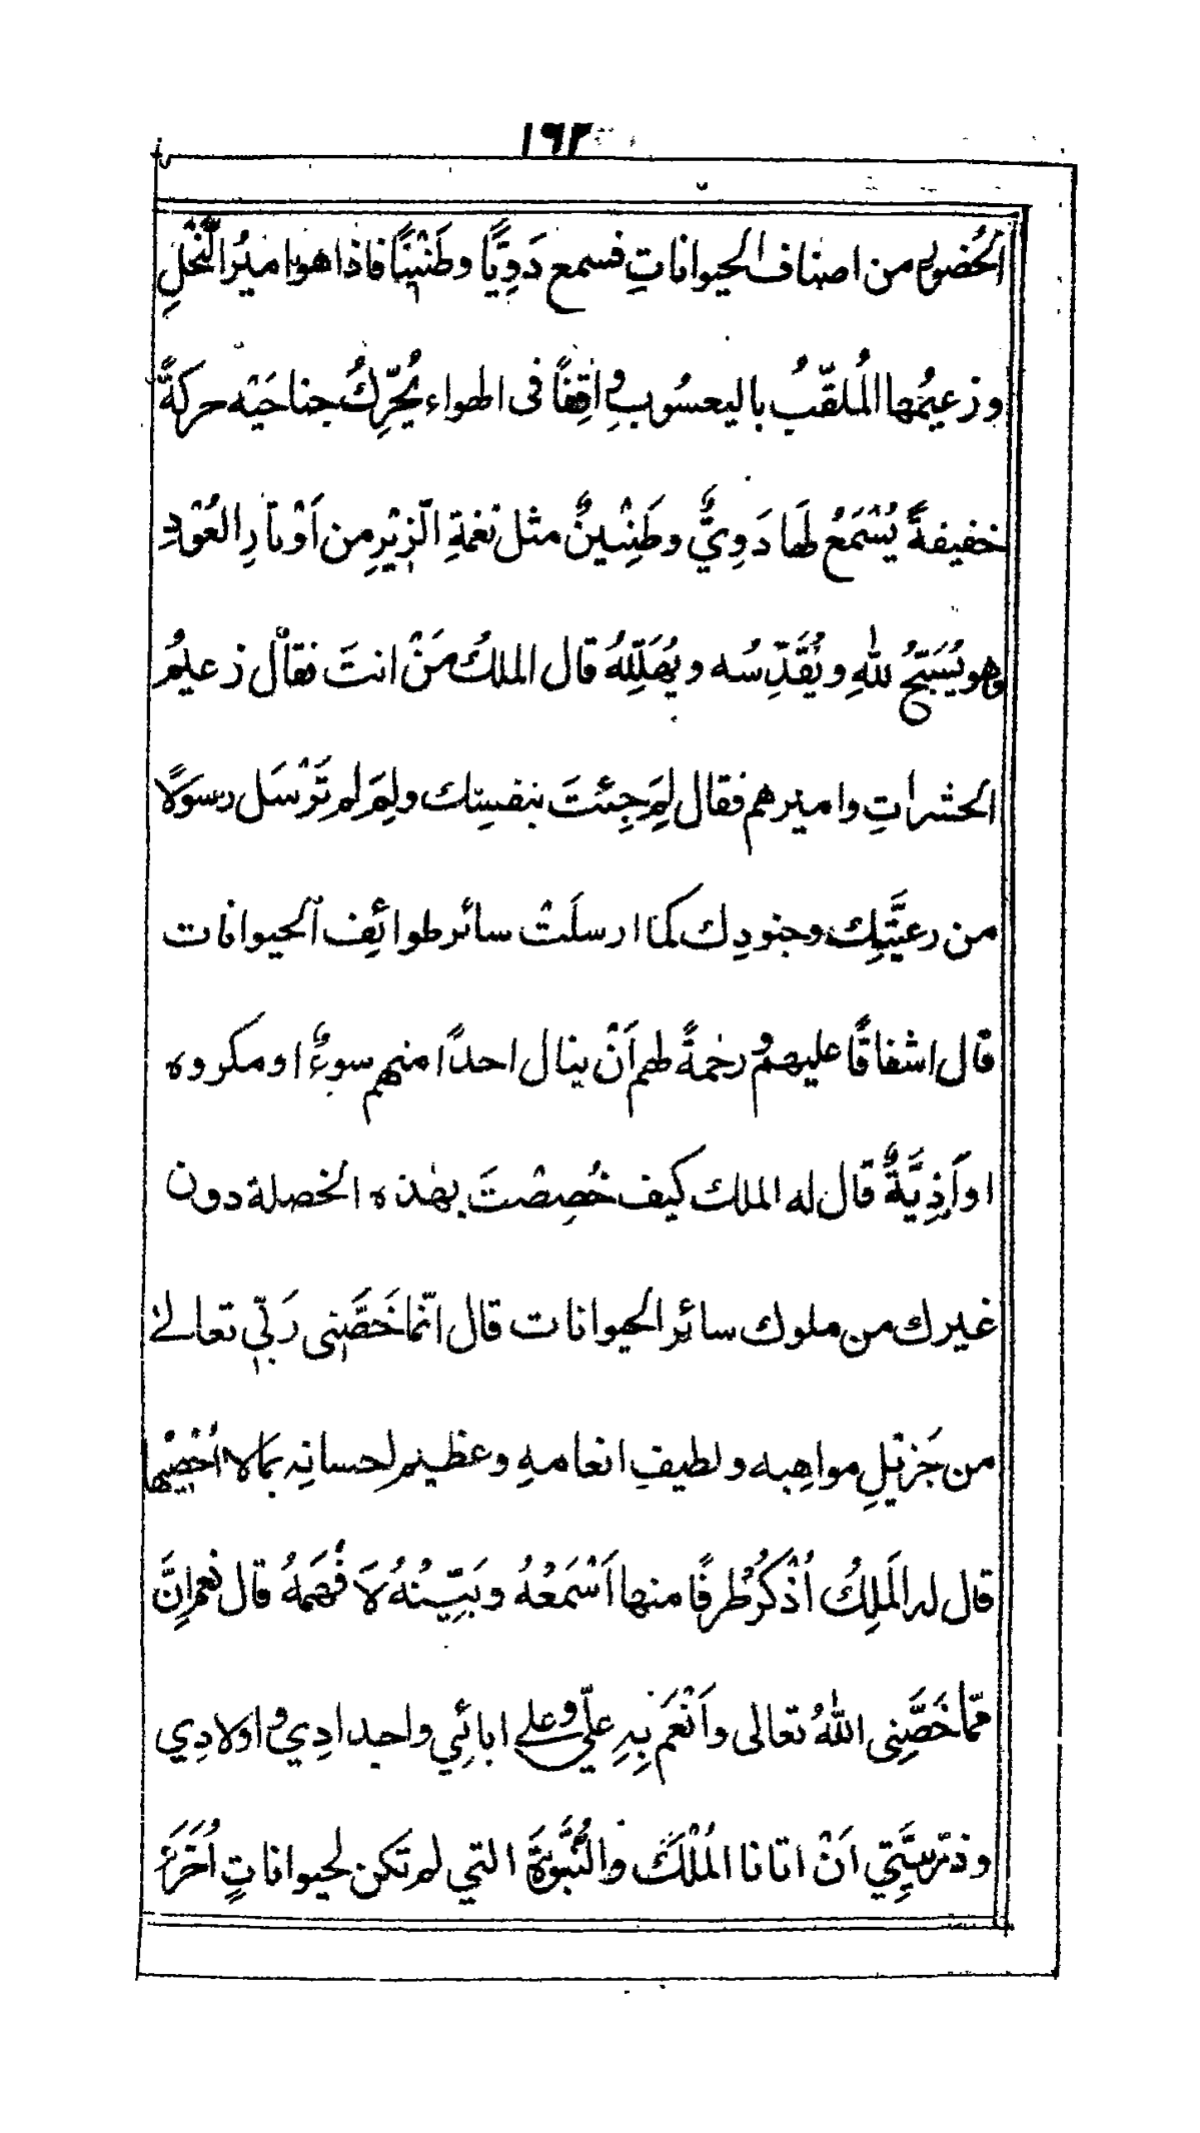 ١٦٢
الحُضور من اصناف الحيوانات فسمع دَوِيًّا وطَنْيْنًا فاذا هو اميرُ النَّحْلِ
وزعيمُها المُلقّبُ باليعسُوبِ واقِفًا فى الهواء يُحَرِّكُ جناحَيْه حركةً
خفيفةً يُسْمَعُ لها دَوِيٌّ وطَنِيْنٌ مثل نغمةِ الزِّيْرِ من اَوْتارِ العُوْدِ
وهو يُسَبِّحُ للهِ ويُقَدِّسُه ويُهَلِّلُهُ قال الملكُ مَنْ انتَ فقال زعيمُ
الحشراتِ واميرهم فقال لِمَ جِئتَ بنفسِك ولِمَ لم تَرْسَل رسولًا
من رعيَّتِك وجنودِك كما ارسلَتْ سائر طوائِف الحيوانات
قال اشفاقًا عليهم ورحمةً لهم اَنْ ينال احدًا منهم سوءٌ او مكروه
او اَذِيَّةٌ قال له الملك كيف خُصِصْتَ بهذه الخصلة دون
غيرك من ملوك سائِر الحيوانات قال انّما خَصَّنِى رَبِّى تعالىٰ
من جَزيْلِ مواهِبه ولطيفِ انعامهِ وعظيم احسانِه بما لا اُحْصِيْها
قال له المَلِكُ اُذْكُرْ طرفًا منها اَسْمَعُهُ وبَيِّنْهُ لاَفْهَمَهُ قال نعم اِنَّ
ممّا خَصَّنِى اللّٰهُ تعالى واَنْعَم بِه علَىّ وعلى ابائِي واجدادِي واولادِي
وذرّيَّتِي اَنْ اتانا المُلْكَ والنُّبُوَّةَ التي لم تَكن لحيواناتٍ اُخَرَ